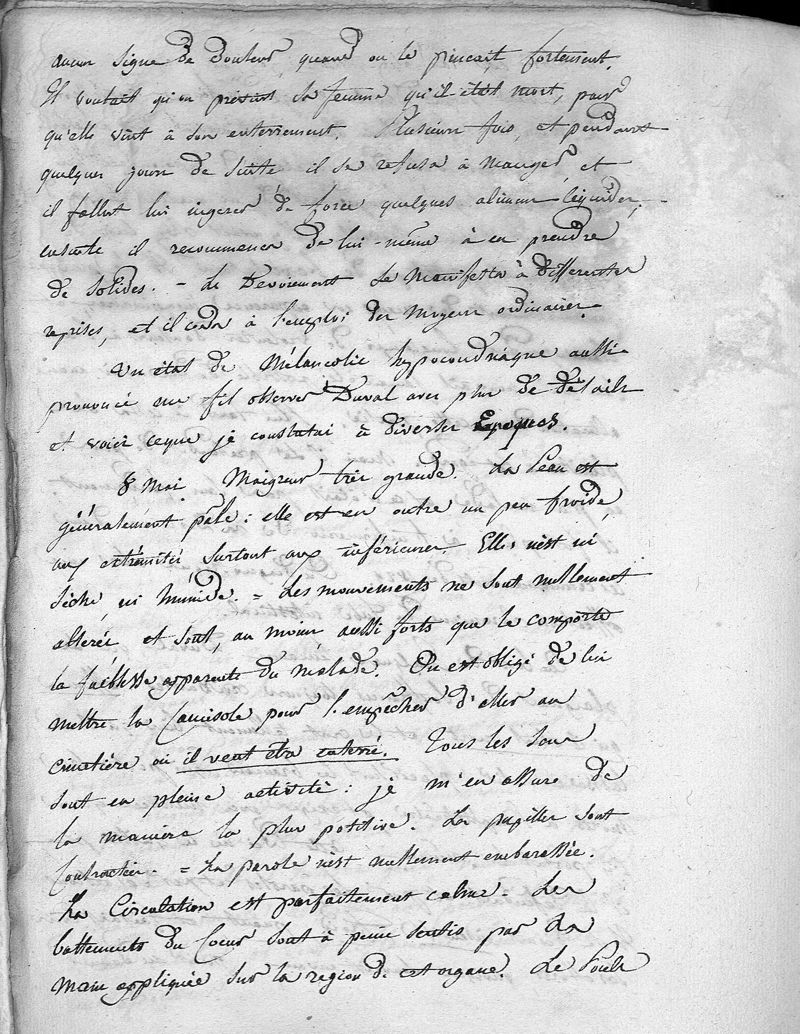 aucun signe de douleur, quand on le pinçait fortement.
Il voulait qu'on prévint sa femme qu'il était mort, pour
qu'elle vînt à son enterrement. Plusieurs fois, et pendant
quelques jours de suite il se refusa à manger et
il fallut lui ingérer de force quelques alimens liquides,
ensuite il recommença de lui-même à en prendre
de solides. - Le Devoiement se manifesta à differentes
reprises, et il céda à l'emploi des moyens ordinaires.
Un état de Mélancolie hypocondriaque aussi
prononcé me fit observer Duval avec plus de détails
et voici ce que je constatai à diverses Epoques.
8 mai Maigreur très grande. La Peau est
généralement pâle : elle est en outre un peu froide,
aux extrémités surtout aux inférieures. Elle n'est ni
sèche, ni humide. = Les mouvements ne sont nullement
altérés et sont, au moins aussi forts que le comporte
la faiblesse apparente du malade. On est obligé de lui
mettre la Camisole pour l'empêcher d'aller au
cimetière où il veut être enterré. Tous les sens
sont en pleine activité : je m'en assure de
la manière la plus positive. Les pupilles sont
Contractées. = La parole n'est nullement embarassée.
La Circulation est parfaitement calme. Les
battements du Coeur sont à peine sentis par la
main appliquée sur la region de cet organe. Le Pouls